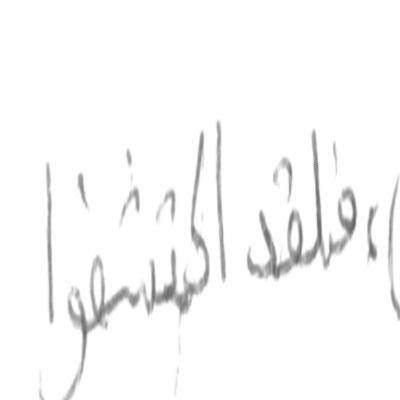 )، فلقد اكتشفوا